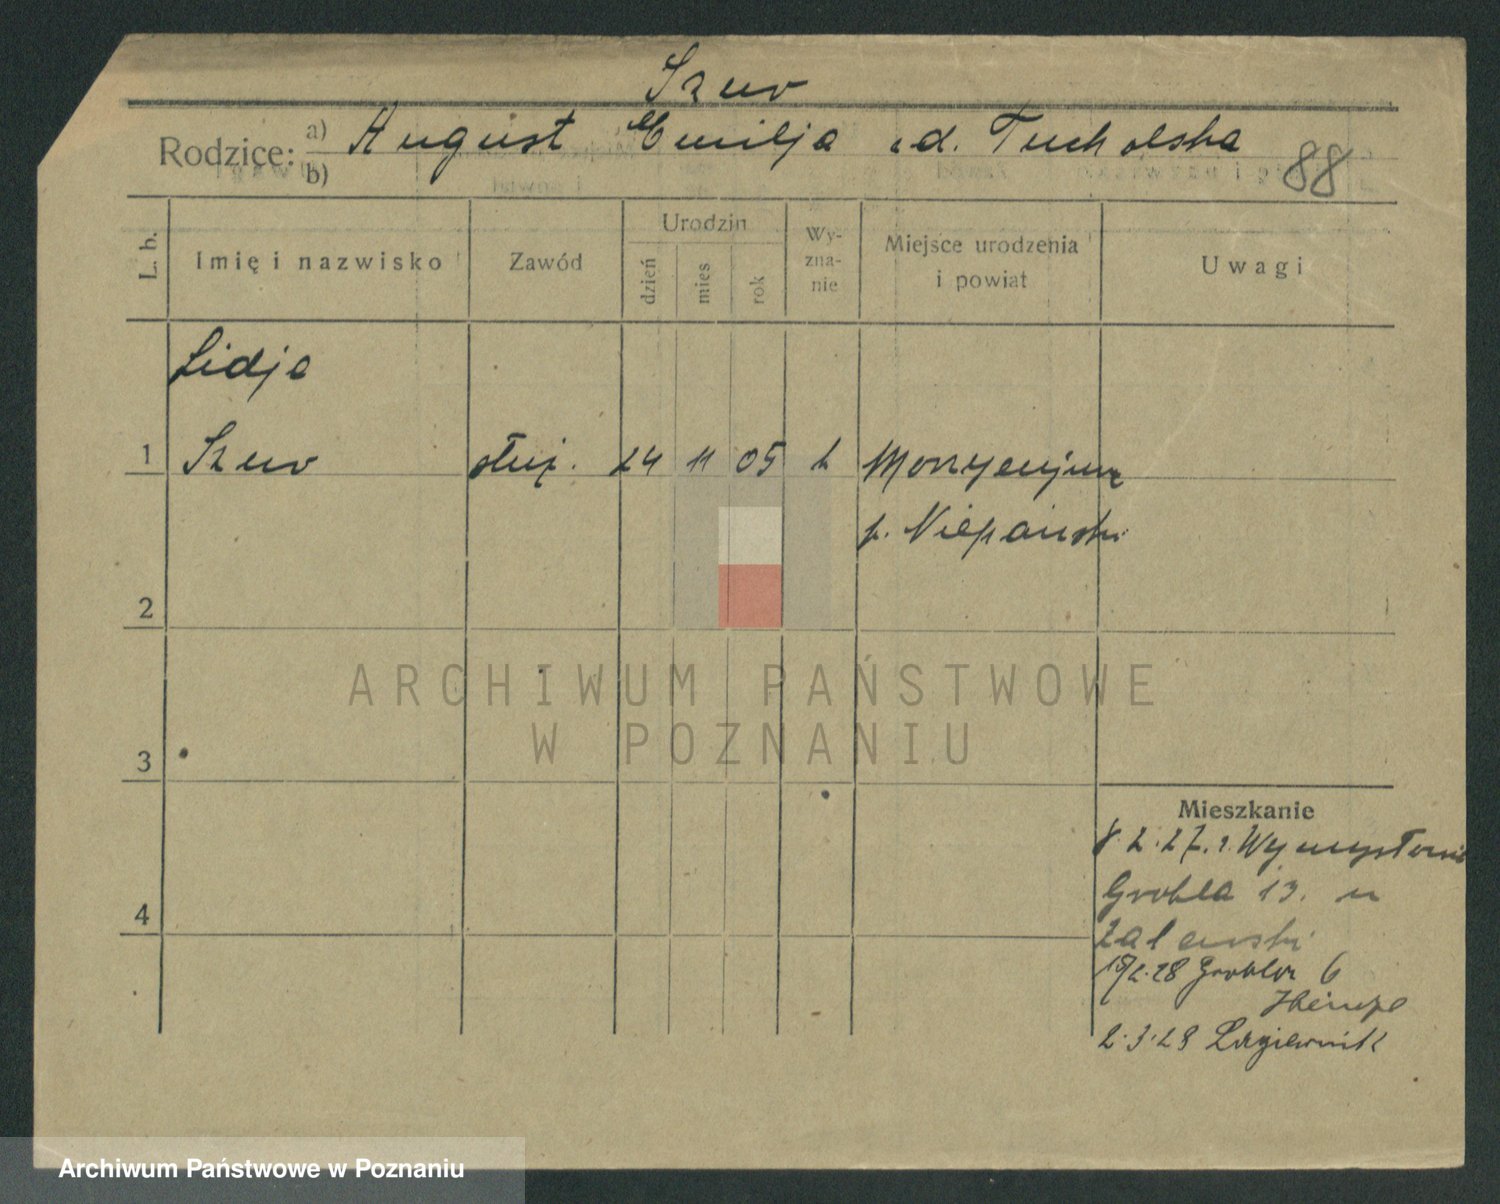 Szur
Rodzice: a) August Emilja z d. Tucholska
b)
88
L. b. Imię i nazwisko Zawód Urodzin dzień mies rok Wy-zna-nie Miejsce urodzenia i powiat Uwagi
Lidja
1 Szur służ. 24 11 05
2
3
4
ARCHIWUM PAŃSTWOWE
W POZNANIU
Mieszkanie
8.2.27. r.
Grobla 13. u
Zalewski
2.28 Grobla 6
2.3.28 Łagiewnik
Archiwum Państwowe w Poznaniu